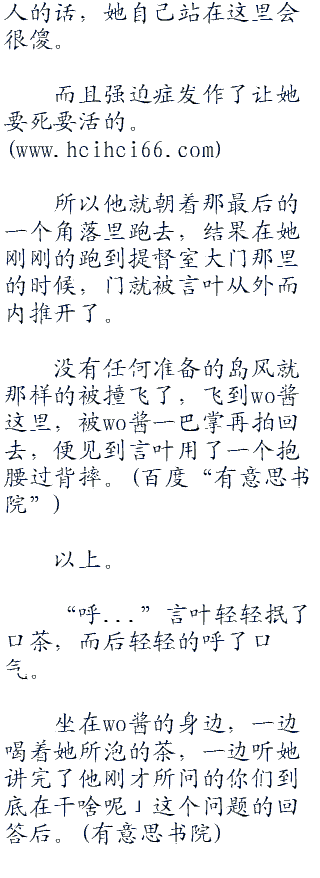 人的话，她自己站在这里会
很傻。
而且强迫症发作了让她
要死要活的。
(www.hcihci66.com)
所以他就朝着那最后的
一个角落里跑去，结果在她
刚刚的跑到提督室大门那里
的时候，门就被言叶从外而
内推开了。
没有任何准备的岛风就
那样的被撞飞了，飞到wo酱
这里，被wo酱一巴掌再拍回
去，便见到言叶用了一个抱
腰过背摔。(百度“有意思书
院”)
以上。
“呼...”言叶轻轻抿了
口茶，而后轻轻的呼了口
气。
坐在wo酱的身边，一边
喝着她所泡的茶，一边听她
讲完了他刚才所问的你们到
底在干啥呢」这个问题的回
答后。(有意思书院)